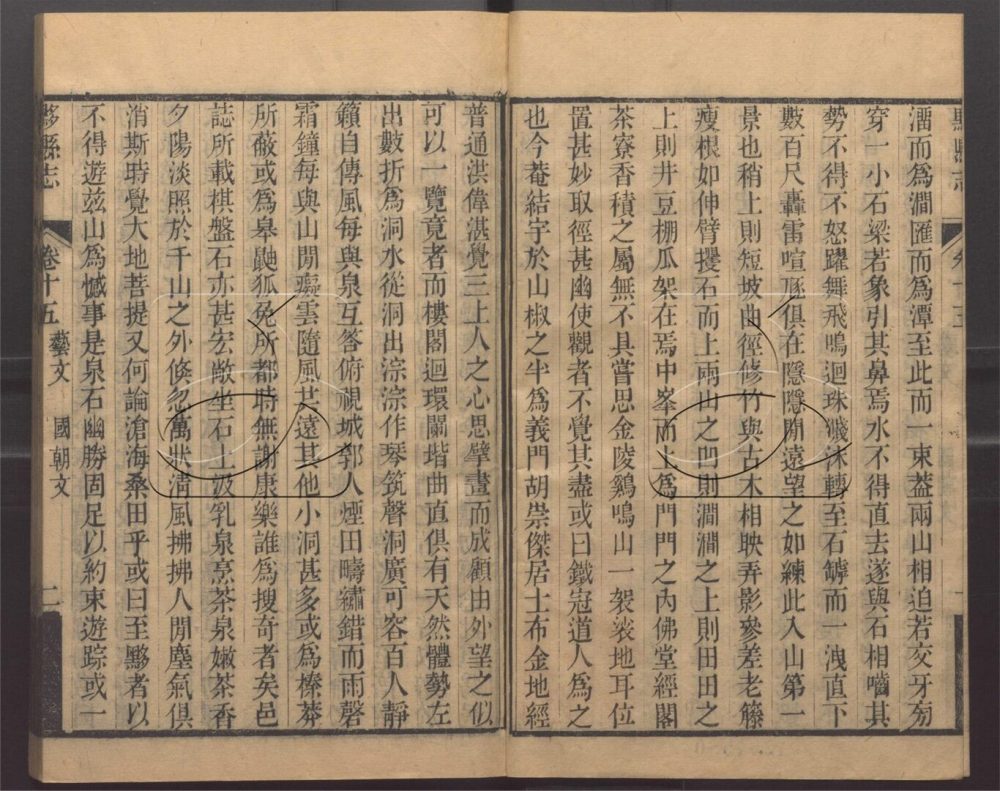 黟縣志
卷十五
一
溜而爲澗匯而爲潭至此而一束葢兩山相迫若交牙芴
穿一小石梁若象引其鼻焉水不得直去遂與石相嚙其
勢不得不怒躍舞飛鳴迴珠濺沐轉至石罅而一洩直下
數百尺轟雷喧豗俱在隱隱閒遠望之如練此入山第一
景也稍上則短坡曲徑修竹與古木相映弄影參差老籐
瘦根如伸臂攫石而上兩山之凹則澗澗之上則田田之
上則井豆棚瓜架在焉中峯而上爲門門之內佛堂經閣
茶寮香積之屬無不具嘗思金陵鷄鳴山一袈裟地耳位
置甚妙取徑甚幽使觀者不覺其盡或曰鐵冠道人爲之
也今菴結宇於山椒之半爲義門胡崇傑居士布金地經
普通洪偉湛覺三上人之心思擘畫而成顧由外望之似
可以一覽竟者而樓閣迴環闌堦曲直俱有天然體勢左
出數折爲洞水從洞出淙淙作琴筑聲洞廣可容百人靜
籟自傳風每與泉互答俯視城郭人煙田疇繡錯而雨磬
霜鐘每與山閒癡雲隨風共遠其他小洞甚多或爲榛莽
所蔽或爲臯鼪狐兔所都時無謝康樂誰爲搜奇者矣邑
誌所載棋盤石亦甚宏敞坐石上汲乳泉烹茶泉嫩茶香
夕陽淡照於千山之外倐忽萬狀淸風拂拂人閒塵氣俱
消斯時覺大地菩提又何論滄海桑田乎或曰至黟者以
不得遊兹山爲憾事是泉石幽勝固足以約束遊踪或一
黟縣志
卷十五 藝文 國朝文
二